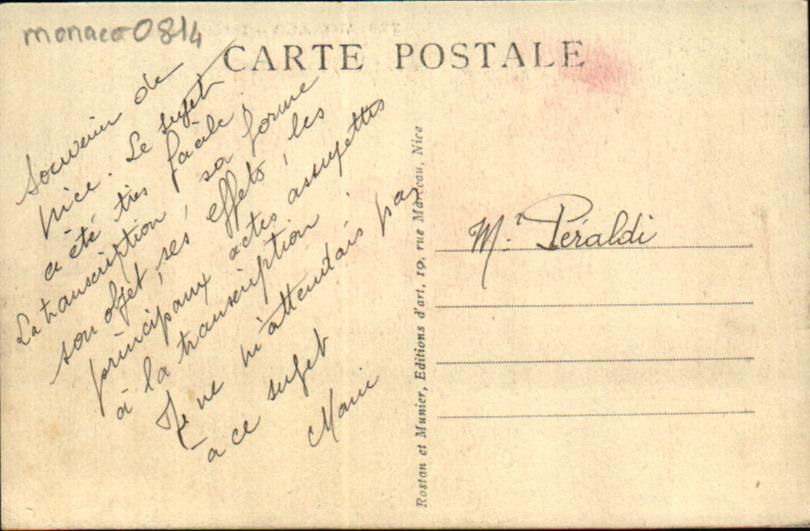 monaco 0814
CARTE POSTALE
Souvenir de
Nice. Le sujet
a été très facile.
La transcription, sa forme
son objet, ses effets, les
principaux actes assujettis
à la transcription.
Je ne m'attendais pas
à ce sujet
Marie
Rostan et Munier, Editions d'art, 19, rue Marceau, Nice
Mr. Péraldi